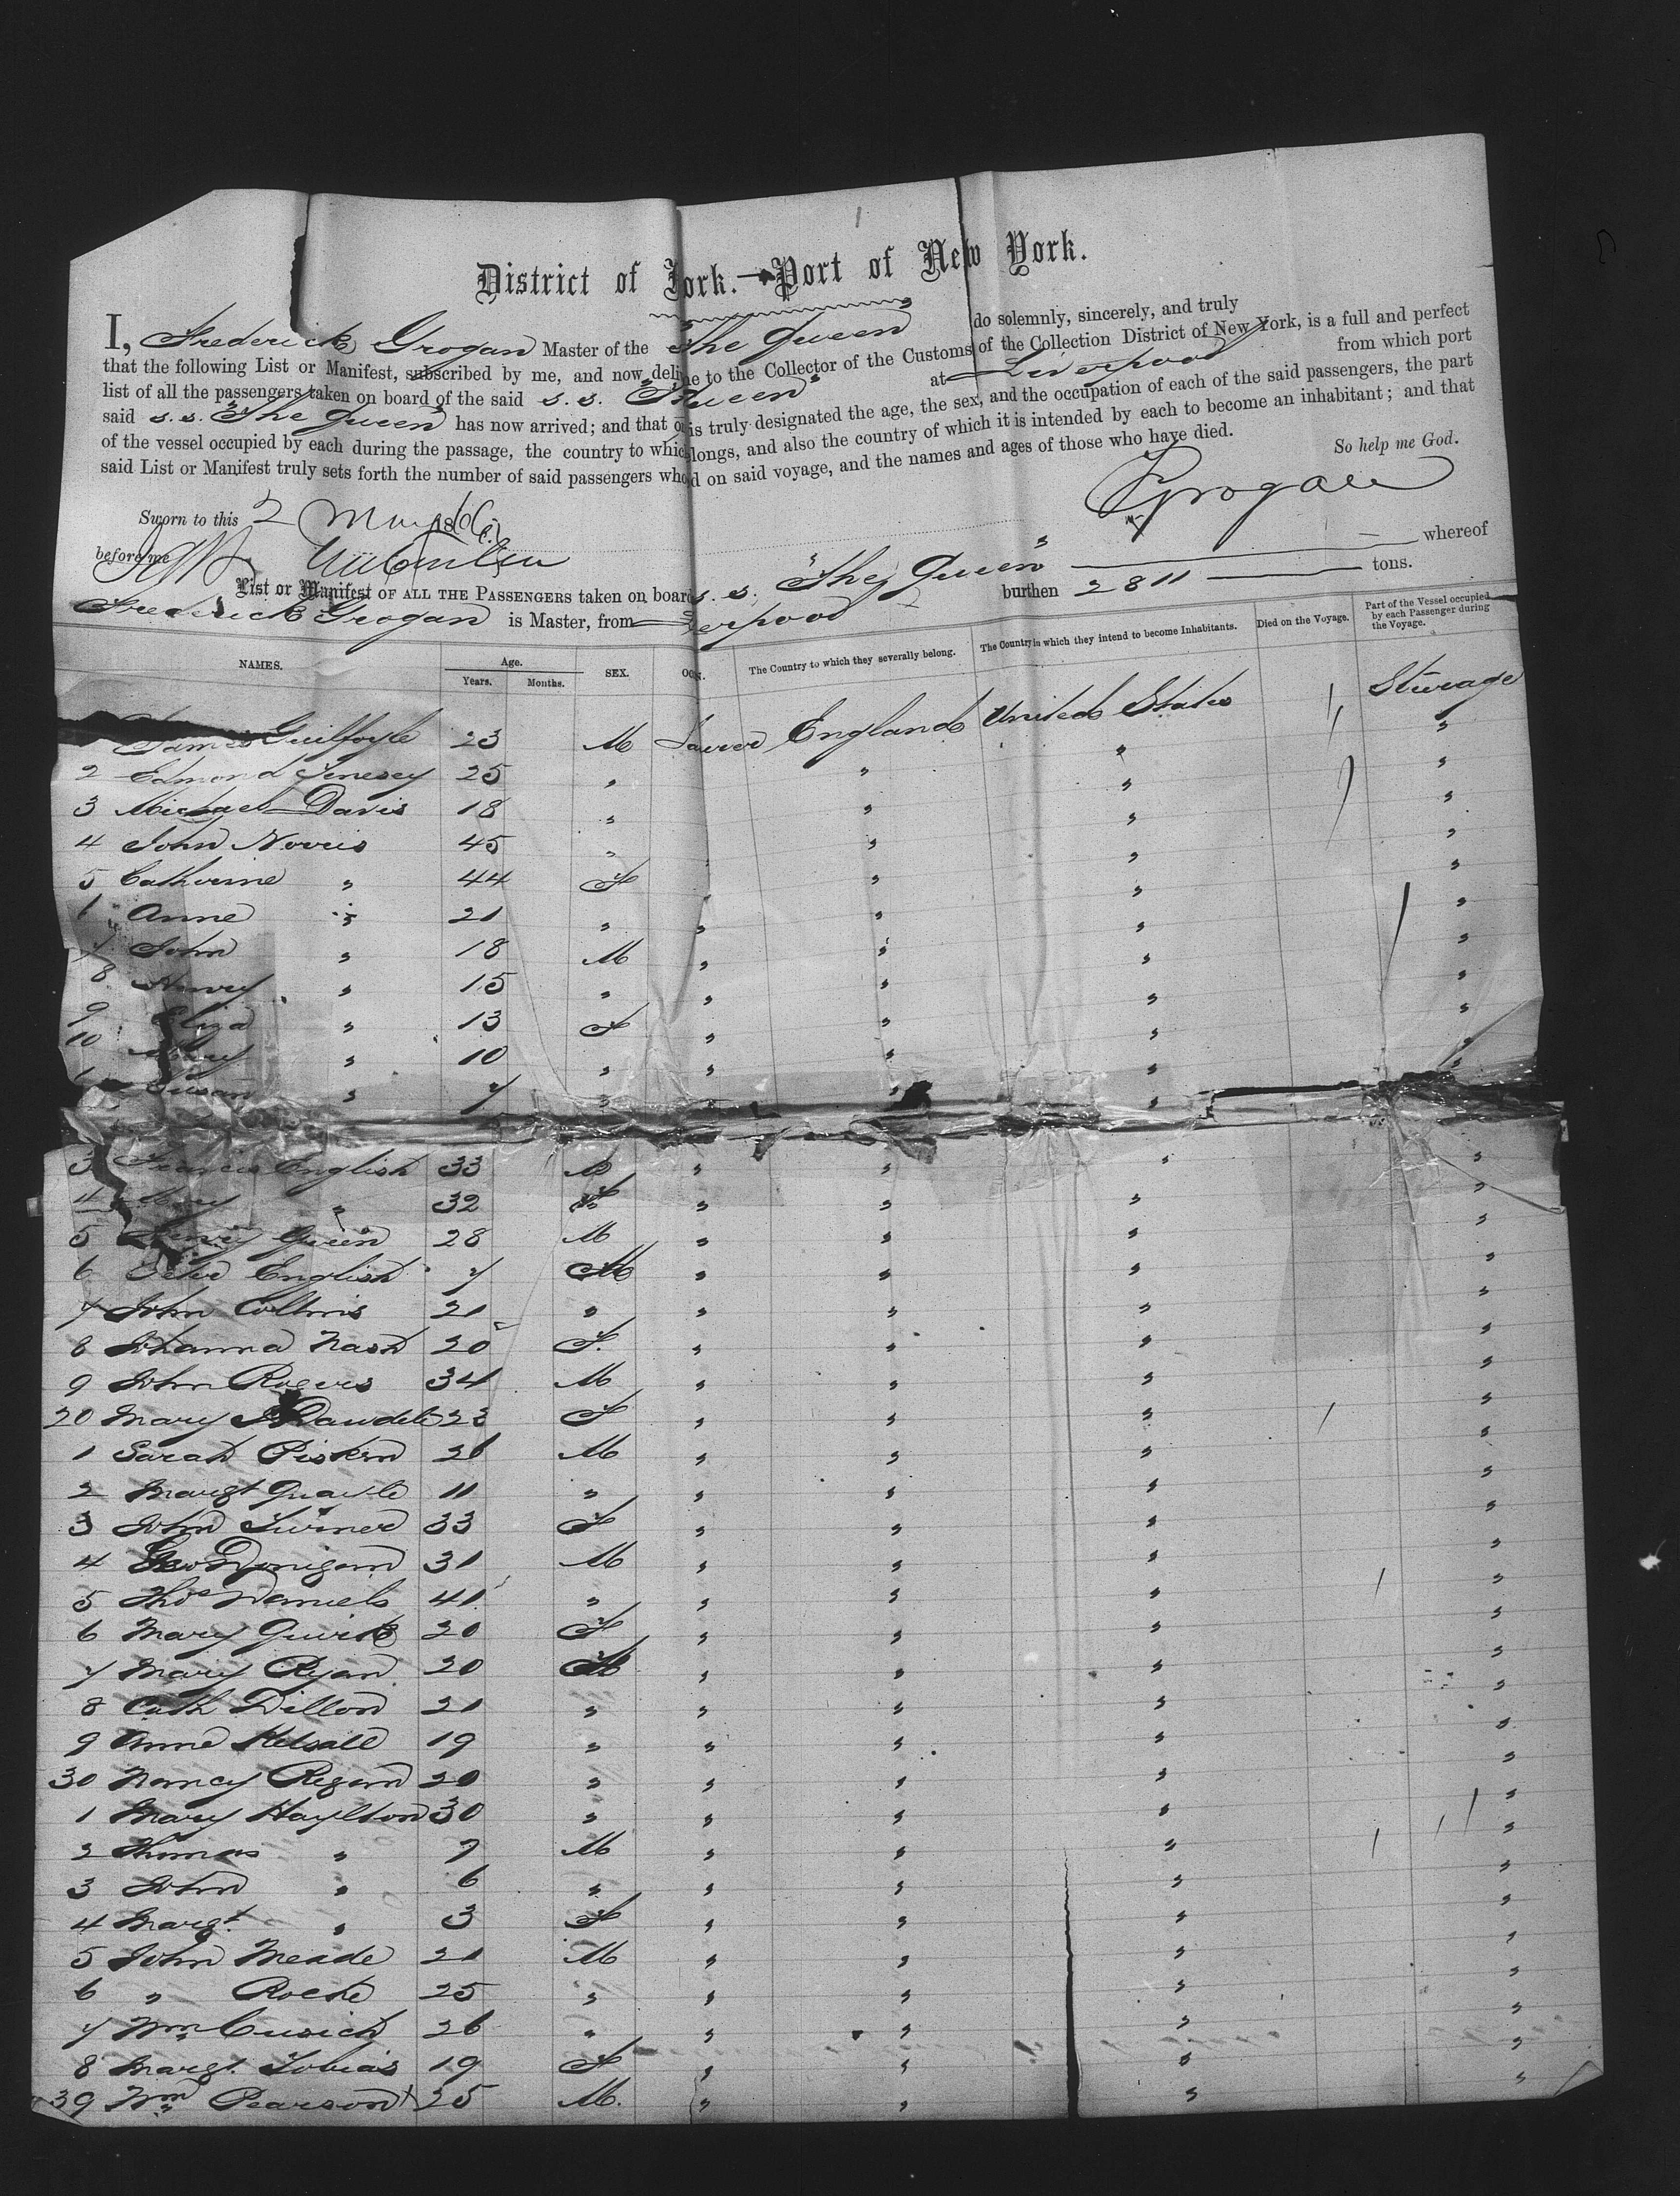 District of York. Port of New York.
I, Frederick Grogan Master of the "The Queen" do solemnly, sincerely, and truly
that the following List or Manifest, subscribed by me, and now deli e to the Collector of the Customs of the Collection District of New York, is a full and perfect
list of all the passengers taken on board of the said s.s. Queen" at Liverpool from which port
said s.s. "The Queen" has now arrived; and that on is truly designated the age, the sex, and the occupation of each of the said passengers, the part
of the vessel occupied by each during the passage, the country to which longs, and also the country of which it is intended by each to become an inhabitant; and that
said List or Manifest truly sets forth the number of said passengers who d on said voyage, and the names and ages of those who have died.
So help me God.
FGrogan
Sworn to this 2 May 1866
before me
List or Manifest OF ALL THE PASSENGERS taken on board s.s. "The Queen" whereof
Frederick Grogan is Master, from erpool burthen 2811 tons.
NAMES. Age. Years. Months. SEX. OCC N. The Country to which they severally belong. The Country in which they intend to become Inhabitants. Died on the Voyage. Part of the Vessel occupied by each Passenger during the Voyage.
James Guilfoyle 23 M England United States Steerage
2 Edmond 25 " " " "
3 Michael Davis 18 " " " "
4 John Norris 45 " " " "
5 Catherine " 44 F " " "
6 Anne " 21 " " " " "
7 John " 18 M " " " "
8 Henry " 15 " " " " "
9 Eliza " 13 F " " " "
10 Mary " 10 " " " " "
Susan " 7 " " " " "
3 Francis English 33 M " " " "
4 Mary " 32 F " " " "
5 28 M " " " "
6 Peter English 7 M " " " "
7 John Collins 21 " " " " "
8 Johanna Nash 20 F. " " " "
9 John Rogers 34 M " " " "
20 Mary 23 F " " " "
1 Sarah 26 M " " " "
2 Margt Quayle 11 " " " " "
3 John Turner 33 F " " " "
4 Geo Donigan 31 M " " " "
5 Thos Daniels 41 " " " " "
6 Mary Quirk 20 F " " " "
7 Mary Ryan 20 " " " "
8 Cath Dillon 21 " " " " "
9 Anne Kelsall 19 " " " " "
30 Nancy Regan 20 " " " " "
1 Mary Haylton 30 " " " " "
2 Thomas " 7 M " " " "
3 John " 6 " " " " "
4 Margt. " 3 F " " " "
5 John Meade 21 M " " " "
6 " Roche 25 " " " " "
7 Wm Cusick 26 " " " " "
8 Margt. Tobias 19 F " " " "
39 Wm Pearson 25 M. " " " "